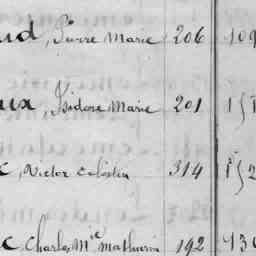 ud, Pierre Marie 206 109
ux, Isidore Marie 201 151
c, Victor Celestin 314 152
c, Charles Mie Mathurin 192 130